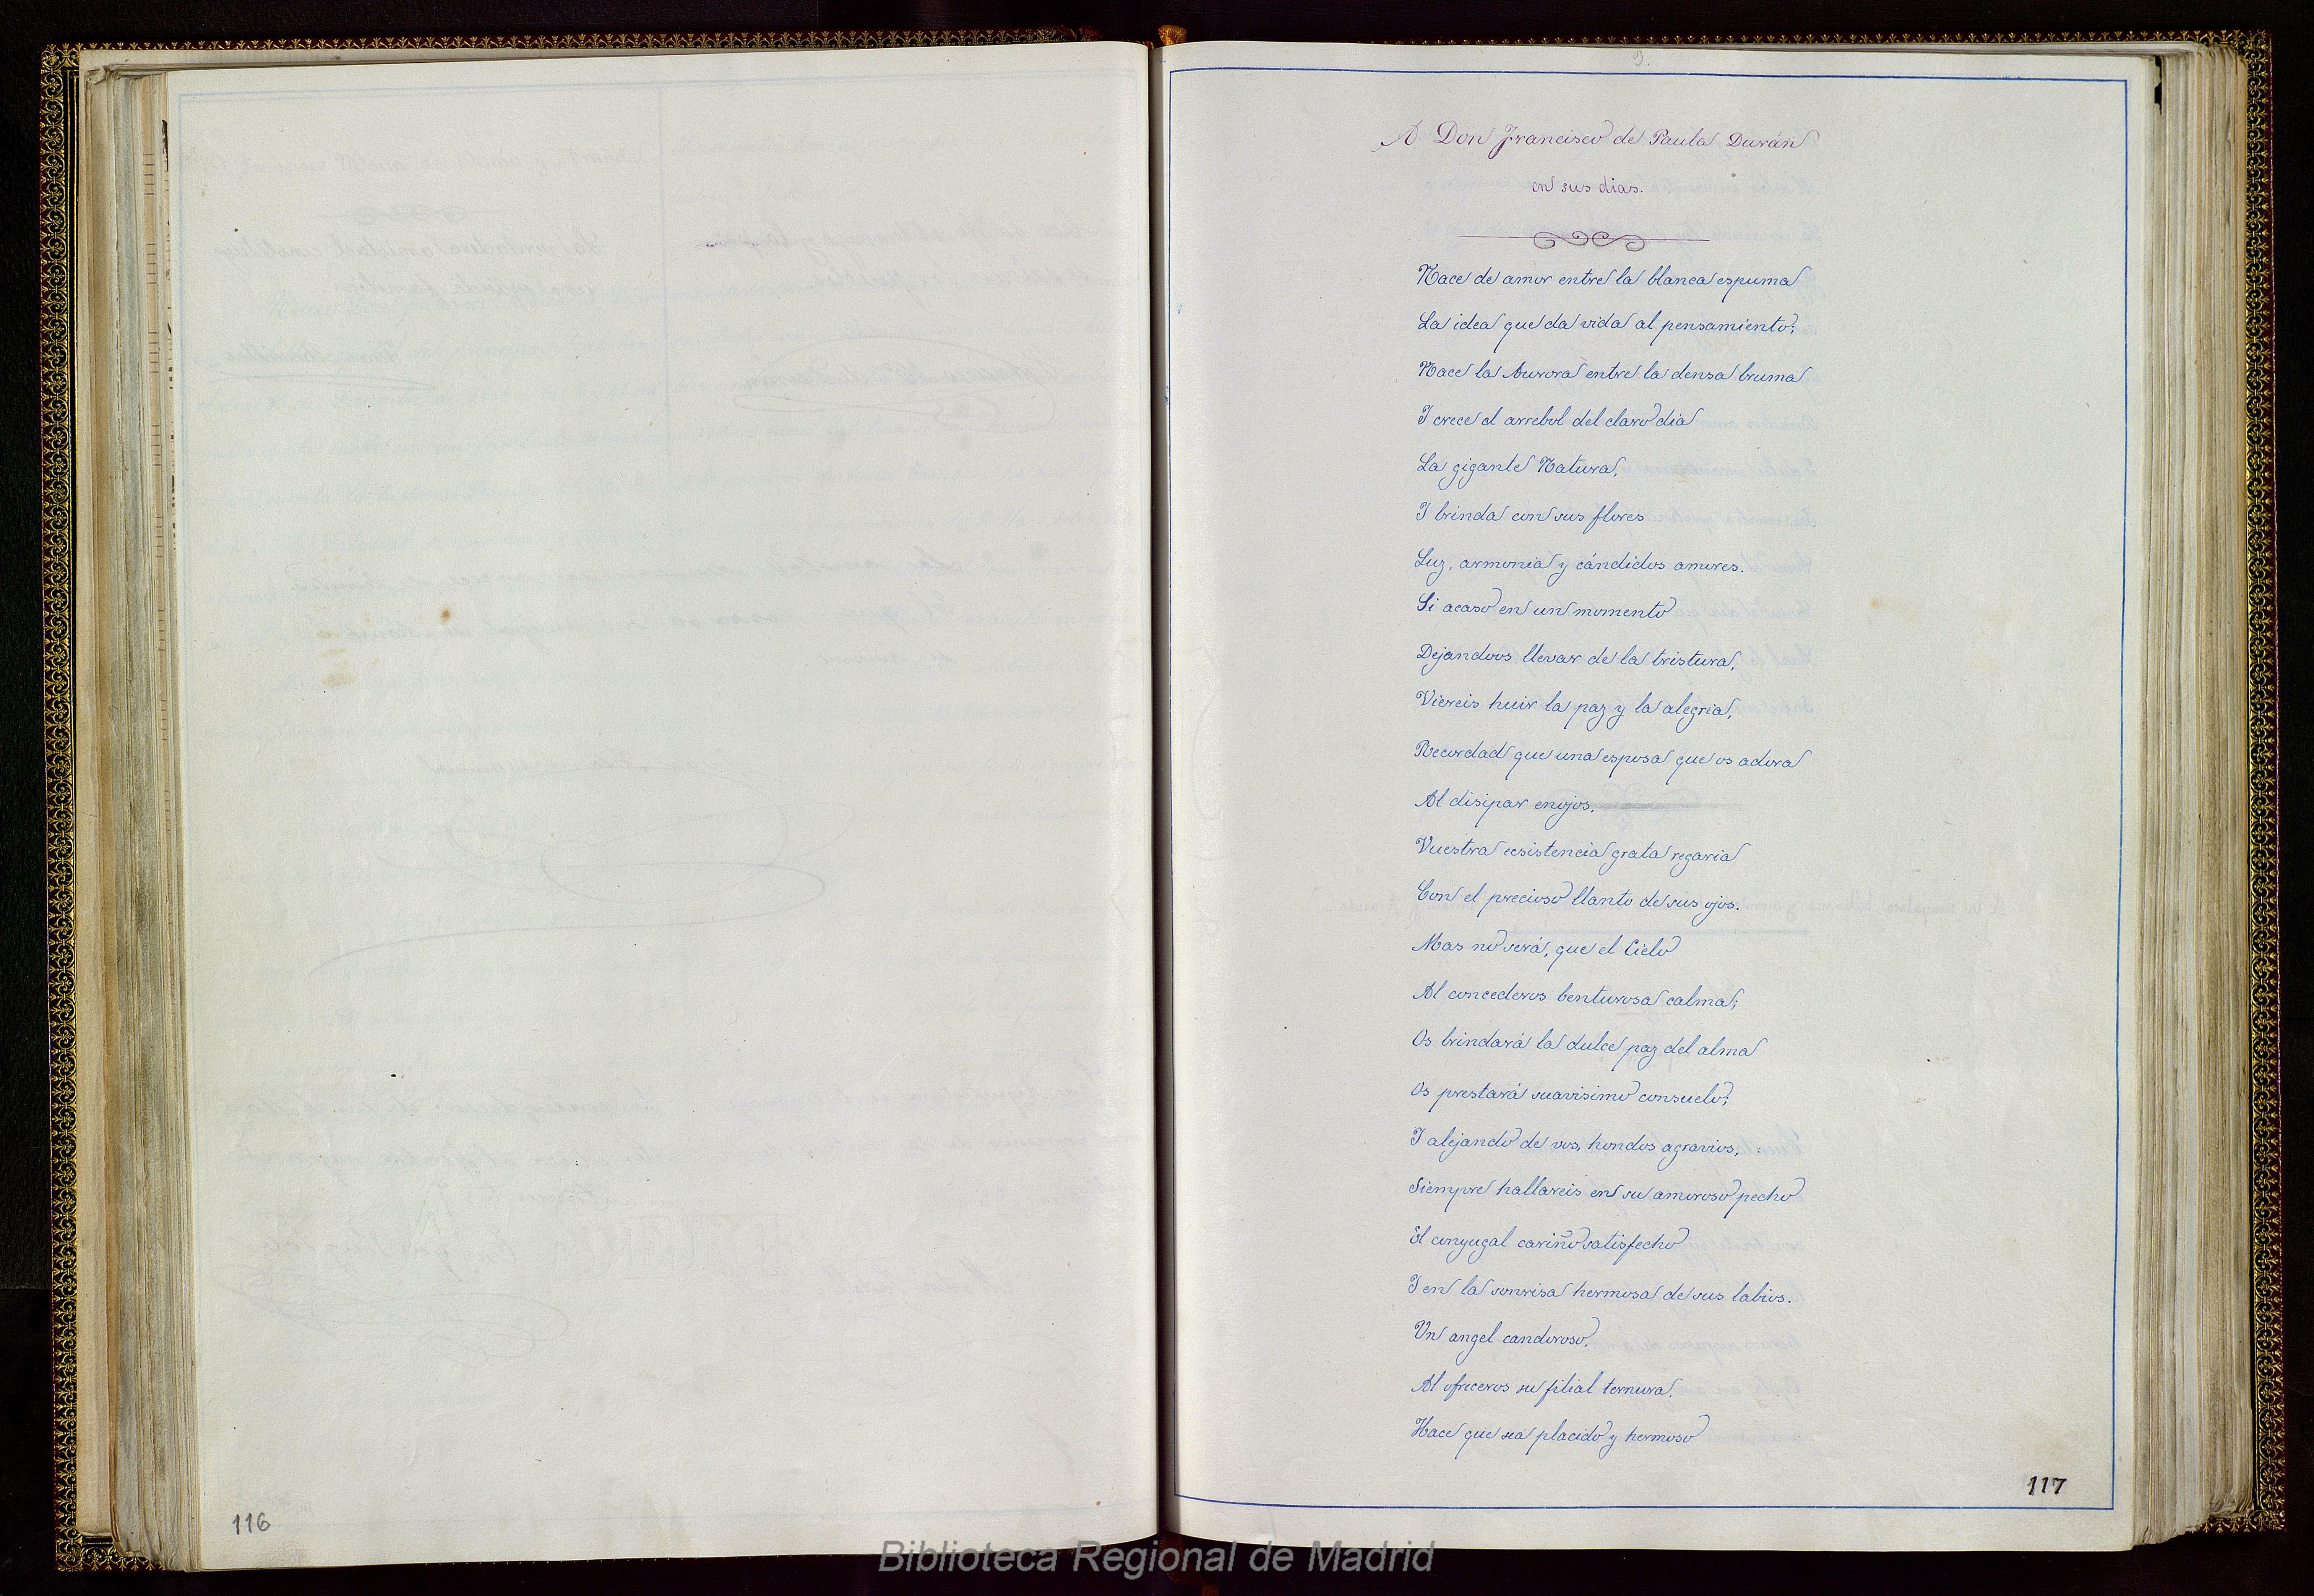 A Don Francisco de Paula Durán
en sus dias.
Nace de amor entre la blanca espuma
La idea que da vida al pensamiento;
Nace la Aurora entre la densa bruma
I crece el arrebol del claro dia
La gigante Natura,
I brinda con sus flores
Luz, armonia y cándidos amores.
Si acaso en un momento
Dejandoos llevar de la tristura,
Viereis huir la paz y la alegria,
Recordad que una esposa que os adora
Al disipar enojos,
Vuestra ecsistencia grata regaria
Con el precioso llanto de sus ojos.
Mas no será, que el Cielo
Al concederos benturosa calma,
Os brindará la dulce paz del alma
Os prestará suavisimo consuelo;
I alejando de vos, hondos agravios,
Siempre hallareis en su amoroso pecho
El conyugal cariño satisfecho
I en la sonrisa hermosa de sus labios.
Un angel candoroso,
Al ofreceros su filial ternura,
Hace que sea placido y hermoso
117
116
Biblioteca Regional de Madrid